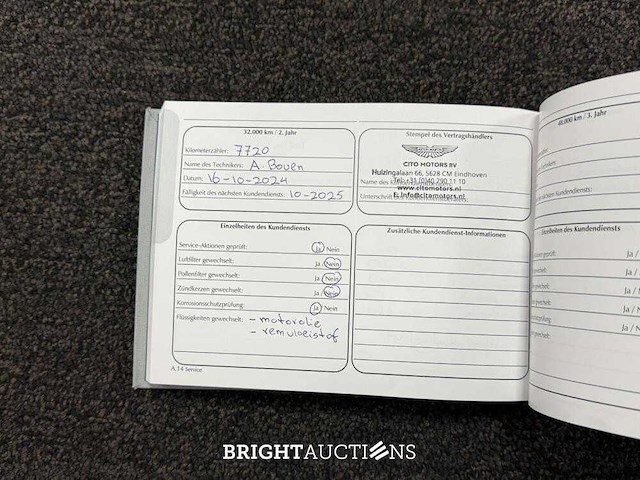 32.000 km / 2. Jahr
Kilometerzähler: 7720
Name des Technikers: A. Boven
Datum: 16-10-2024
Fälligkeit des nächsten Kundendiensts: 10-2025
Stempel des Vertragshändlers
CITO MOTORS BV
Huizingalaan 66, 5628 CM Eindhoven
Tel: +31 (0)40 290 11 10
www.citomotors.nl
E: info@citomotors.nl
Einzelheiten des Kundendiensts
Service-Aktionen geprüft: Ja / Nein
Luftfilter gewechselt: Ja / Nein
Pollenfilter gewechselt: Ja / Nein
Zündkerzen gewechselt: Ja / Nein
Korrosionsschutzprüfung: Ja / Nein
Flüssigkeiten gewechselt: - motorolie
- remvloeistof
Zusätzliche Kundendienst-Informationen
A.14 Service
48.000 km / 3. Jahr
Kundendiensts:
Kundendiensts
Ja /
Ja /
Ja /
Ja / N
Ja / N
BRIGHTAUCTIONS